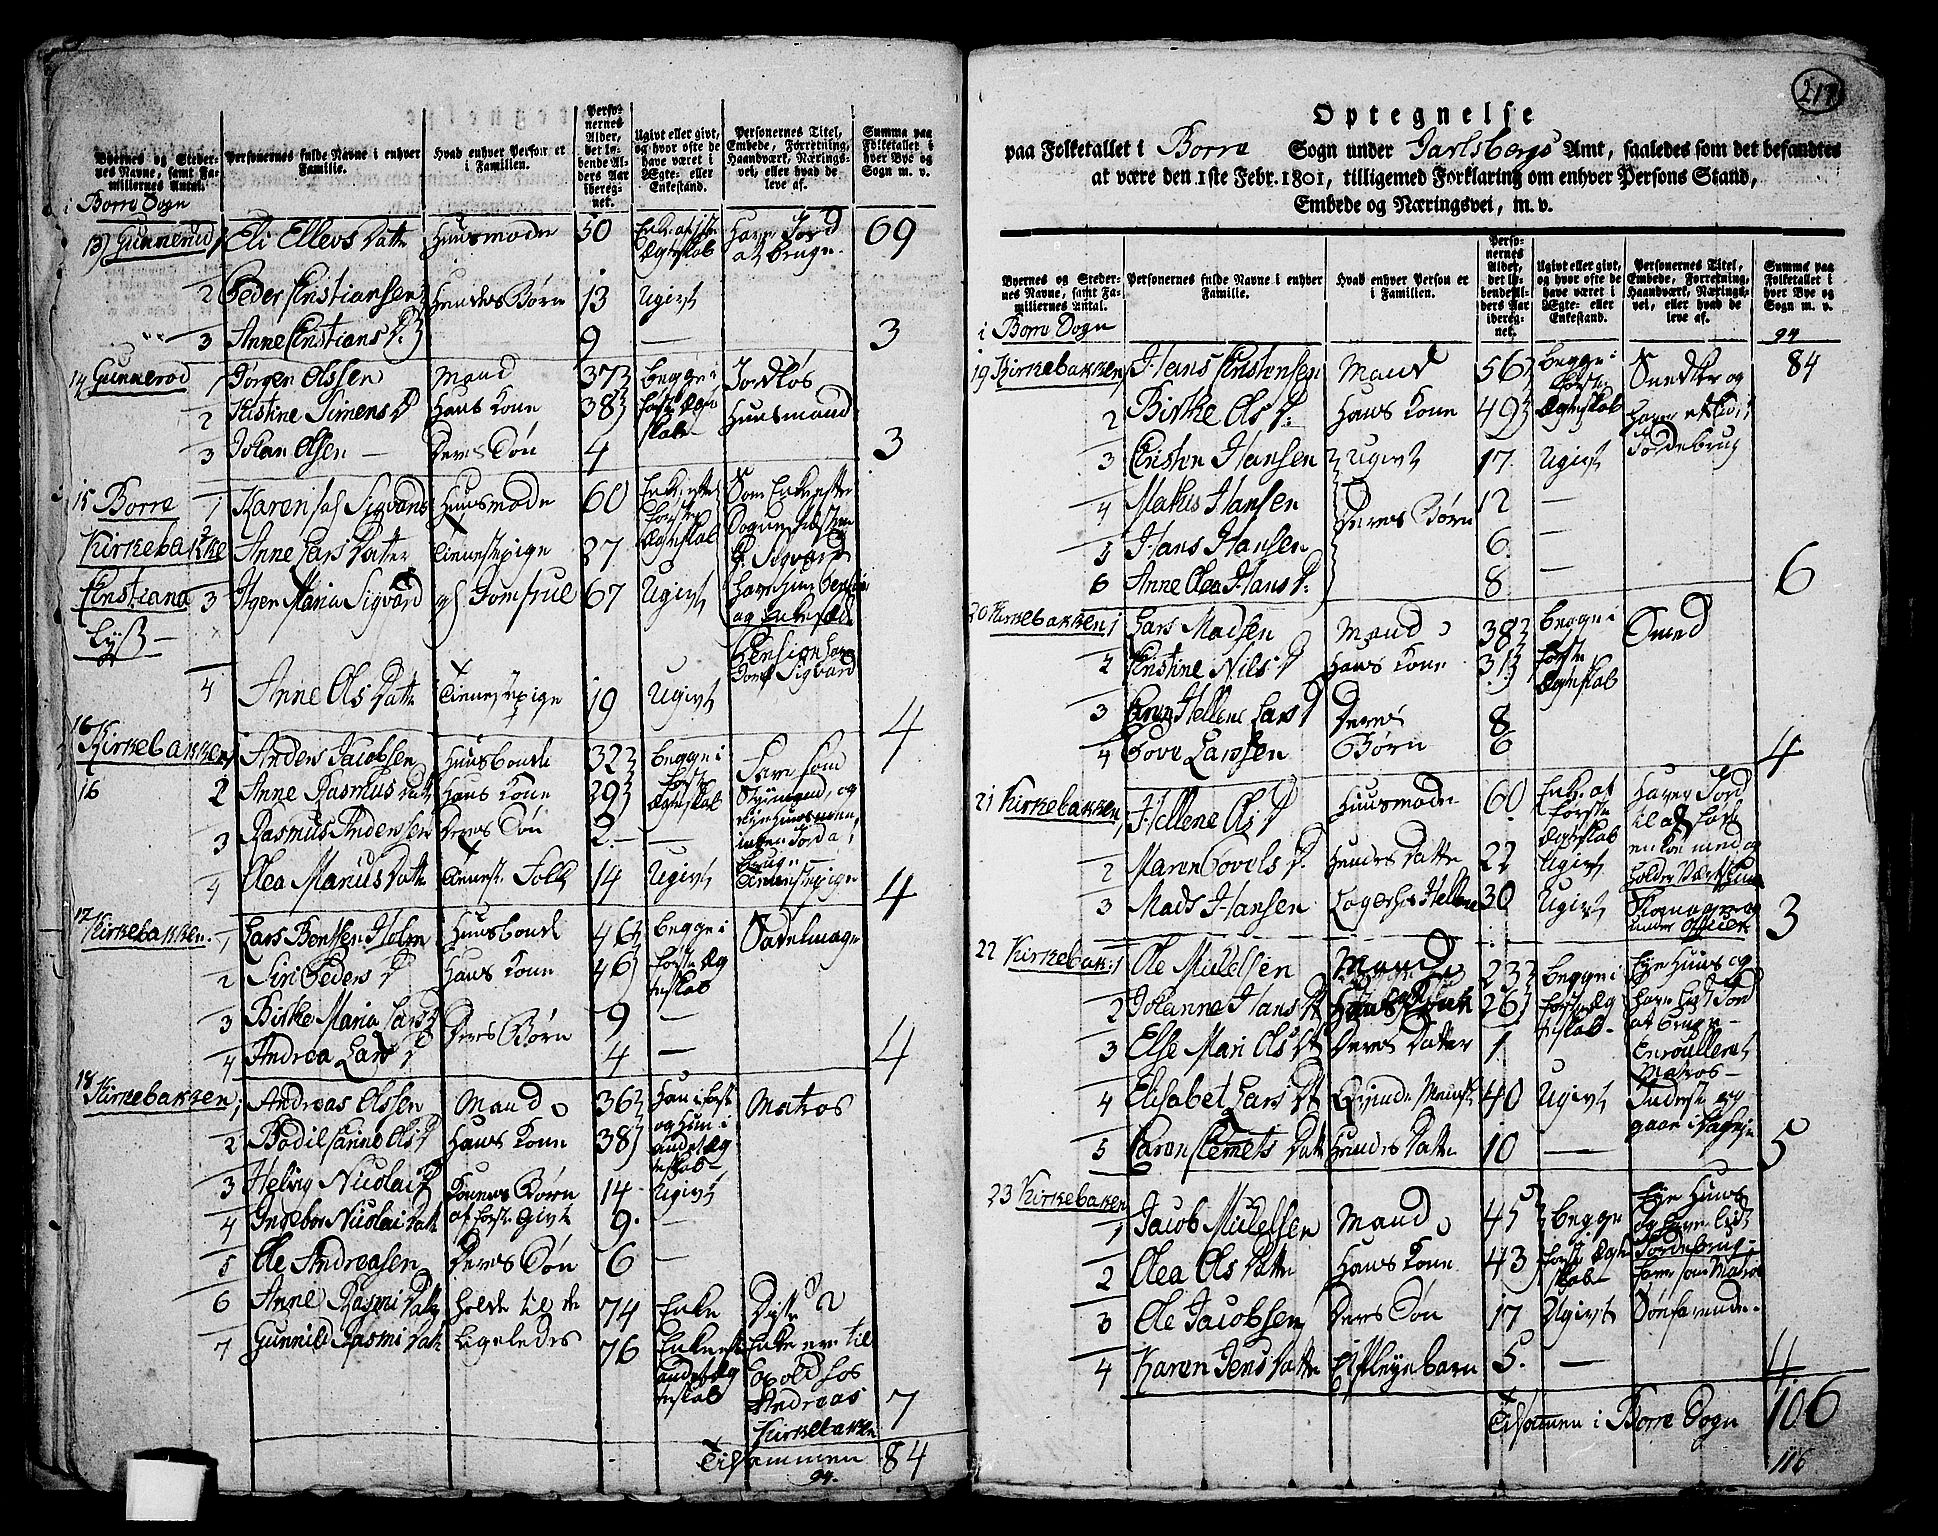 Byernes og Stedernes Navne, samt Familiernes Antal.
Personernes fulde Navne i enhver Familie.
Hvad enhver Person er i Familien.
Personernes Alder, det løbende Alders Aar iberegnet.
Ugivt eller givt, og hvor ofte de have været i Ægte- eller Enkestand.
Personernes Titel, Embede, Forretning, Haandværk, Næringsvei, eller hvad de leve af.
Summa paa Folketallet i hver Bye og Sogn m. v.
i Borre Sogn
13) Gunnerud 1 Eli Ellevs Datter Huusmoder 50 Enke af 1ste Ægteskab Haver Jord at bruge 69
2 Peder Cristiansen Hendes Børn 13 Ugivt
3 Anne Cristians D: 9 — 3
14 Gunnerød 1 Jørgen Olssen Mand 37 begge i første Ægteskab Jordløs Huusmand
2 Kistine Simens D Hans Kone 38
3 Johan Olsen — Deres Søn 4 3
15 Borre Kirkebakke 1 Karen sal Sigvards Huusmoder 60 Enke efter første Ægteskab Som Enke efter Sogne Præsten
2 Anne Lars Datter Tienestepige 37 Sigvard
Cristiana Lyst — 3 Inger Maria Sigvard gl Jomfrue 67 Ugivt og Enkesæde
4 Anne Ols Datter Tienestepige 19 Ugivt Pension Jomf Sigvard 4
16 Kirkebakken 1 Anders Jacobsen Huusbonde 32 begge i første Ægteskab Fare som Styrmand, og eye Huus
16 2 Anne Rasmus Datt Hans Kone 29 ingen Jord a bruge —
3 Rasmus Andersen Deres Søn 2. —
4 Olea Marius Datter Tieneste Folk 14 Ugivt Tienestepige 4
17 Kirkebakken. 1 Lars Bentsen Holm Huusbonde 46 begge i første Ægteskab Sadelmager
2 Siri Peders D Hans Kone 46
3 Birthe Maria Lars D Deres Børn 9 —
4 Andrea Lars D 4 — 4
18 Kirkebakken 1 Andreas Olssen Mand 36 Han i først og Hun i andet Ægteskab Matros
2 Bodil Carine Ols D Hans Kone 38
3 Helvig Nicolai D Konens Børn af først Givt 14 Ugivt
4 Ingebor Nicolai Datt 9. —
5 Ole Andreasen Deres Søn 6 —
6 Anne Rasmi Datt holdes til de 74 Enke
7 Gunnild Rasmi Datt Ligeledes 76 Enke efter andet Ægteskab til Ophold hos Andreas Kirkebakke 7
Tilsammen 84
94.
217
Optegnelse
paa Folketallet i Borre Sogn under Jarlsbergs Amt, saaledes som det befandtes
at være den 1ste Febr. 1801, tilligemed Forklaring om enhver Persons Stand,
Embede og Næringsvei, m. v.
Byernes og Stedernes Navne, samt Familiernes Antal.
Personernes fulde Navne i enhver Familie.
Hvad enhver Person er i Familien.
Personernes Alder, det løbende Alders Aar iberegnet.
Ugivt eller givt, og hvor ofte de have været i Ægte- eller Enkestand.
Personernes Titel, Embede, Forretning, Haandværk, Næringsvei, eller hvad de leve af.
Summa paa Folketallet i hver Bye og Sogn m. v.
i Borre Sogn 94
19 Kirkebakken 1 Hans Cristensen Mand 56 begge i første Ægteskab Snedker og haver et lidit Jordebrug 84
2 Birthe Ols D: Hans Kone 49
3 Cristen Hansen Ugivt 17 Ugivt
4 Matias Hansen Deres Børn 12 —
5 Hans Hansen 6 —
6 Anne Olea Hans D: 8 — 6
20 Kirkebakken 1 Lars Madsen Mand 38 begge i første Ægteskab Smed
2 Cristine Nils D Hans Kone 31
3 Hellene Lars D Deres 8
4 Tove Larssen Børn 6 4
21 Kirkebakken 1 Hellene Ols D Huusmoder 60 Enke af første Ægteskab Haver Jord til at føde en Koe med og
2 Maren Tovels D. Hendes Datter 22 Ugivt holder Værtshuus
3 Mads Hansen Logerhos Hellene 30 Ugivt Skomager og under Officer 3
22 Kirkebak: 1 Ole Mickelsen Mand 23 begge i første Ægteskab Eye Huus og haver lidt Jord at bruge —
2 Johanne Hans D Hans Kone 26
3 Else Mari Ols D Deres Datter 1 Enroulleret Matros —
4 Elisabet Lars D 40 Ugivt Inderst og gaar i Dagleye
5 Caren Clemets Datt Hendes Datter 10 — 5
23 Kirkebakken 1 Jacob Mickelsen Mand 45 begge i første Ægteskab Eye Huus og haver lidt Jordebrug, fare som Matros
2 Olea Ols Datter Hans Kone 43
3 Ole Jacobsen Deres Søn 17 Ugivt Søefarende.
4 Karen Jens Datter Et Pleyebarn 5. — 4
Tilsammen i Borre Sogn 106
116